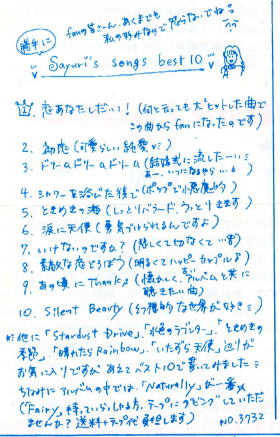 勝手に
fanの皆さーん、あくまでも
私の好みなので怒らないでね
Sayuri's songs best 10
1. 恋あなたしだい! (何と言っても大ヒットした曲で
この曲からfanになったのです)
2. 初恋 (可愛らしい純愛)
3. ドリームドリームドリーム (結婚式に流したーい
あー、いつになるやら…)
4. シャワーを浴びた後で (ポップで小悪魔的)
5. ときめきの海 (しっとりバラード、うっとりきます)
6. 涙に天使 (勇気づけられるんですよ)
7. いけないのですか? (悲しくて切なくて…)
8. 素敵な恋どろぼう (明るくてハッピーカップル♪)
9. あの頃にThanks (懐かしく、アルバムと共に
聴きたい曲)
10. Silent Beauty (幻想的な世界が好き)
※他に「Stardust Drive」、「水色のラブレター」、「ときめきの
季節」、「晴れたらRainbow」、「いたずら天使」辺りが
お気に入りですが あえてベスト10で書いてみました
ちなみにアルバムの中では、「Naturally」が一番
(「Fairy」持っていらっしゃる方、テープにダビングしていただ
けませんか? 送料+テープ代負担します)
NO.3732